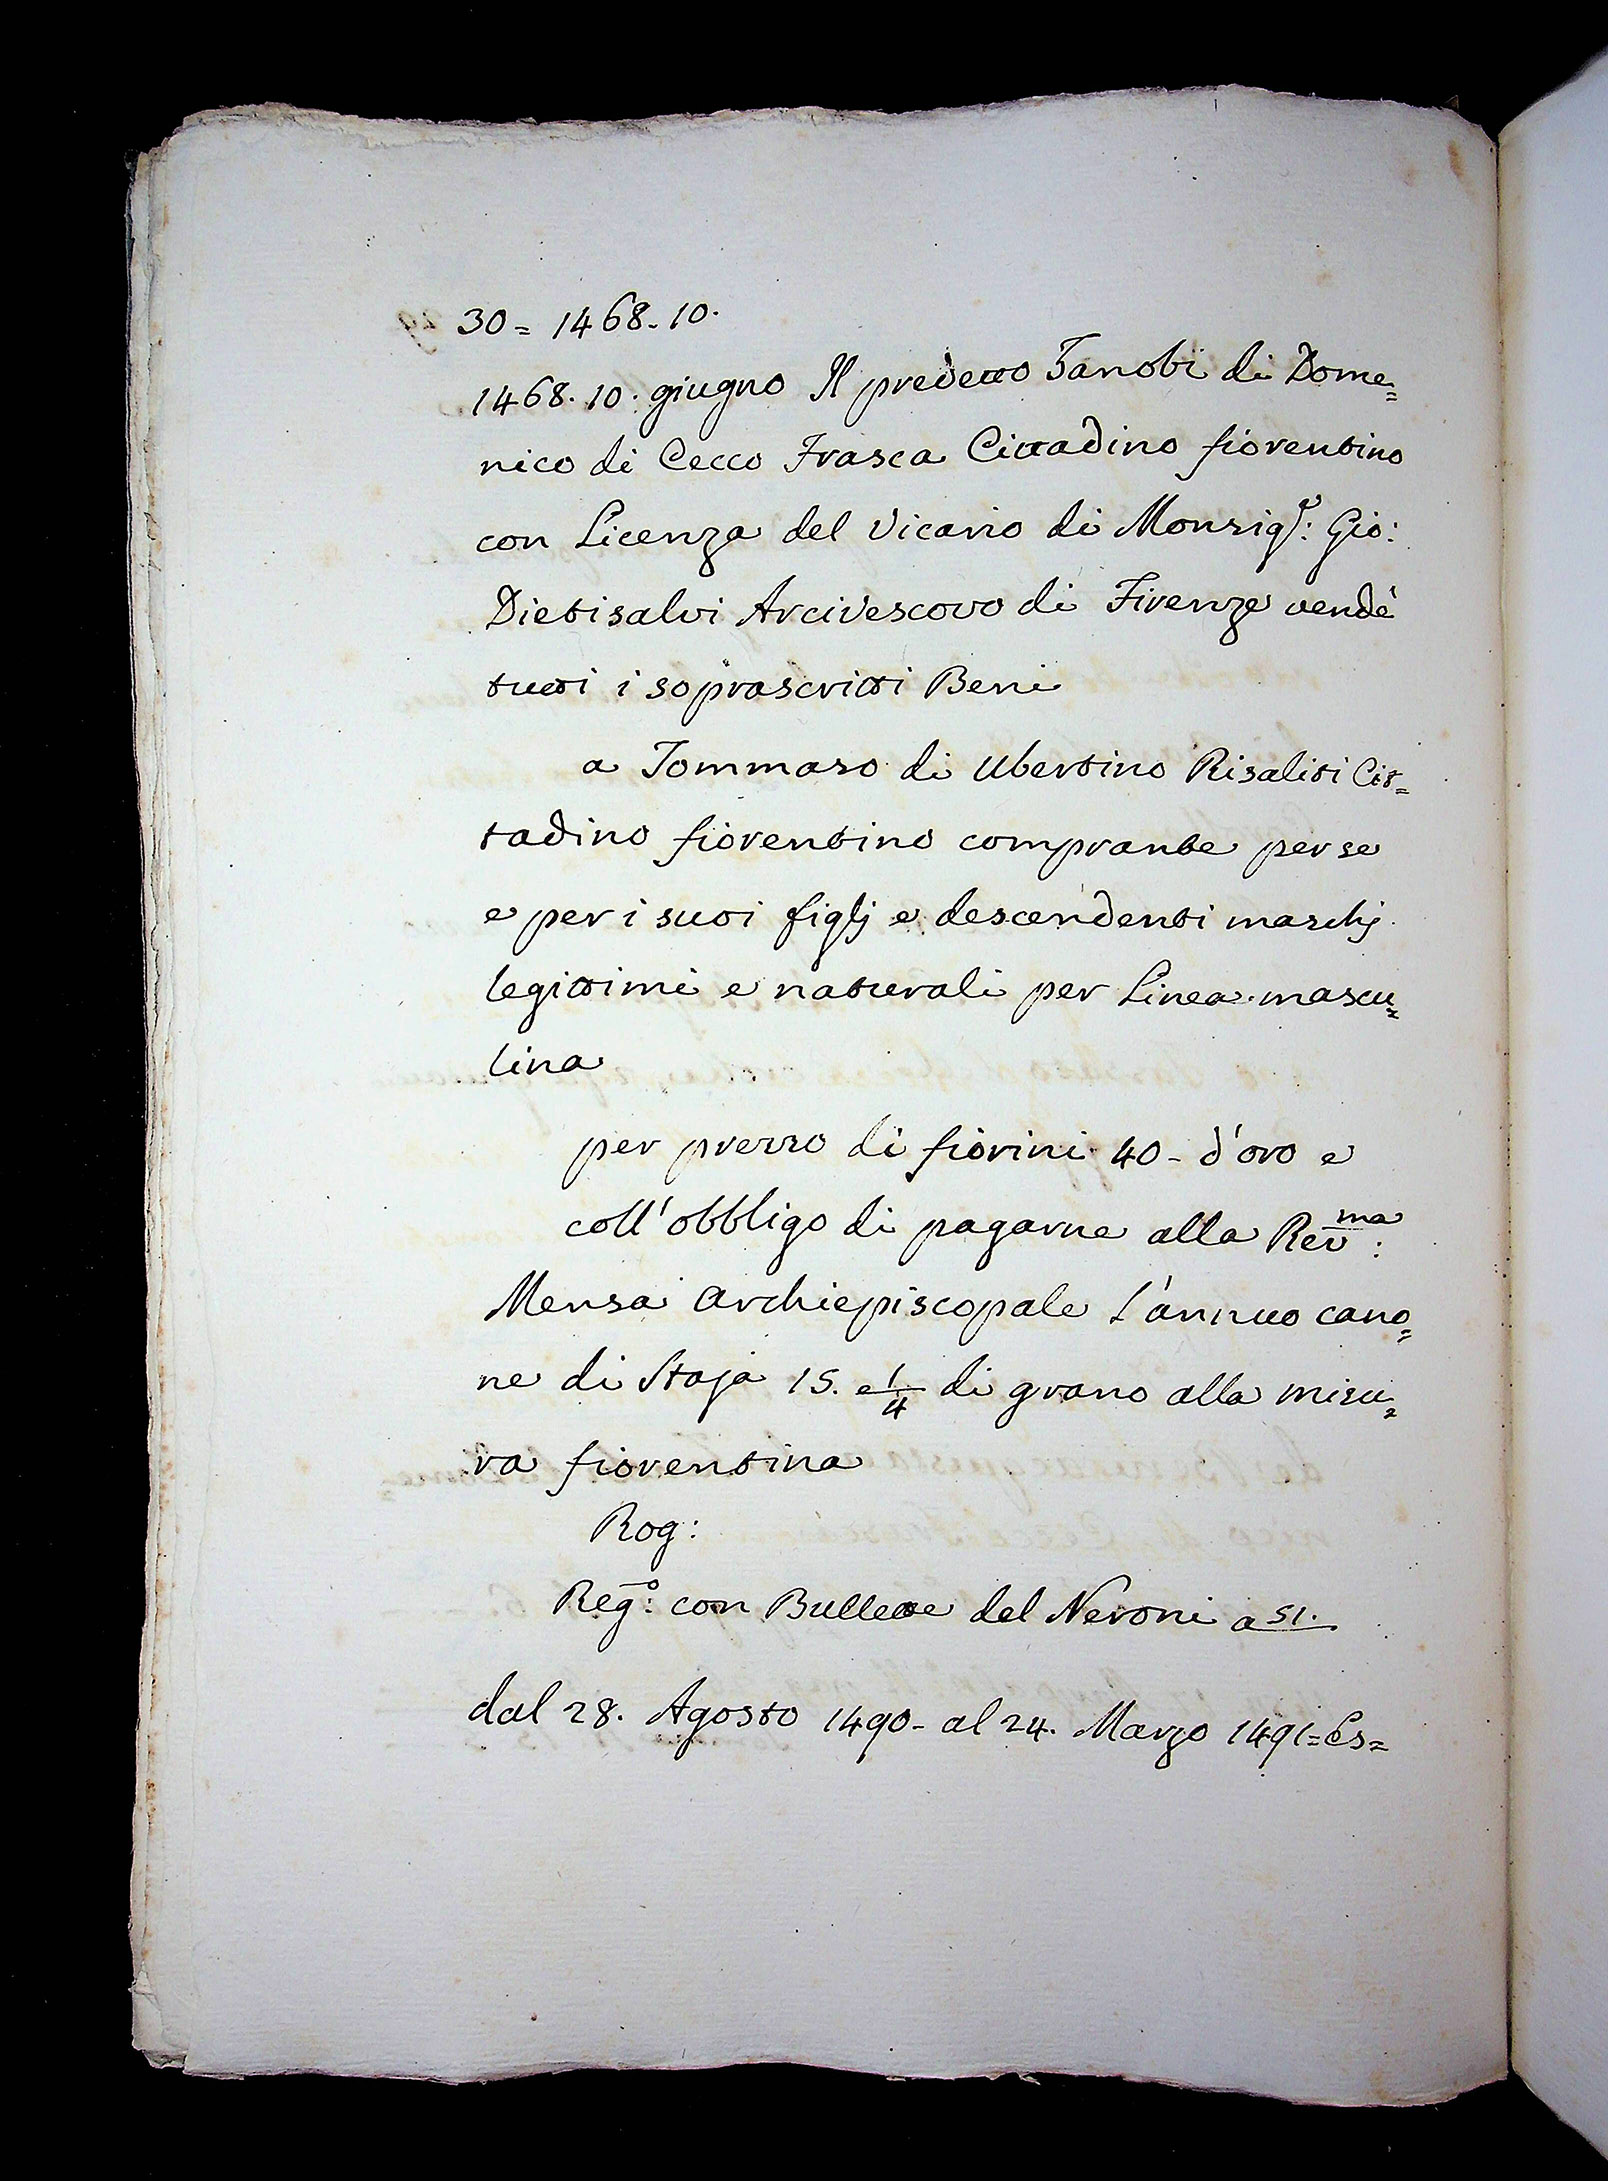 30= 1468. 10.
1468. 10. giugno Il predetto Zanobi di Dome=
nico di Cecco Frasca Cittadino fiorentino
con Licenza del Vicario di Monsig.r: Gio:
Dietisalvi Arcivescovo di Firenze vendè
tutti i soprascritti Beni
a Tommaso di Ubertino Risaliti Cit=
tadino fiorentino comprante per se
e per i suoi figlj e descendenti maschj
legittimi e naturali per Linea mascu=
lina
per prezzo di fiorini 40- d'oro e
coll' obbligo di pagarne alla Rev.ma:
Mensa Archiepiscopale l'annuo cano=
ne di Staja 15. e 1/4 di grano alla misu=
ra fiorentina
Rog:
Reg.o: con Bullette del Neroni a 51.
dal 28. Agosto 1490- al 24. Marzo 1491= Es=